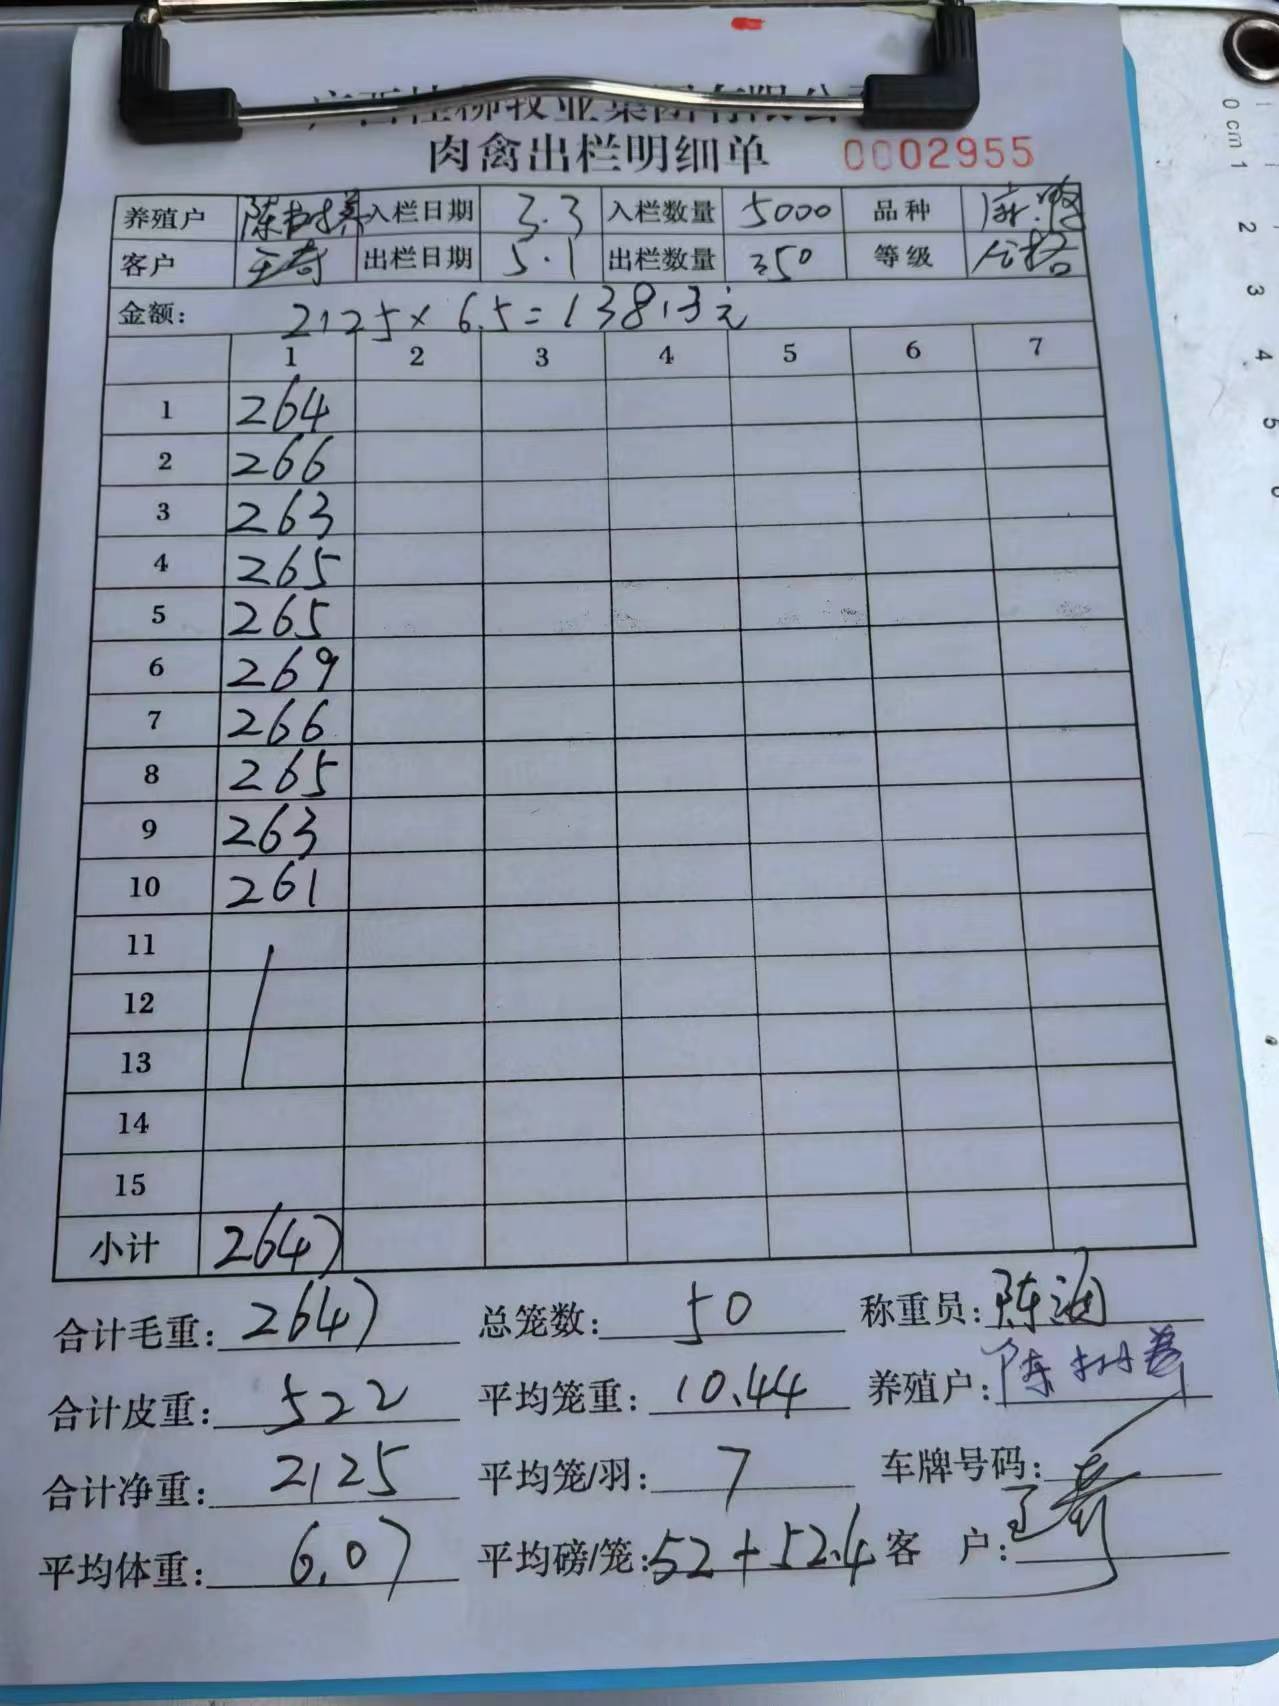 广西桂柳牧业集团有限公司
肉禽出栏明细单 0002955
养殖户 陈树养 入栏日期 3.3 入栏数量 5000 品种 麻鸭
客户 王奇 出栏日期 5.1 出栏数量 350 等级 合格
金额: 2125×6.5=13813元
1 2 3 4 5 6 7
1 264
2 266
3 263
4 265
5 265
6 269
7 266
8 265
9 263
10 261
11
12
13
14
15
小计 2647
合计毛重: 2647 总笼数: 50 称重员: 陈
合计皮重: 522 平均笼重: 10.44 养殖户: 陈树养
合计净重: 2125 平均笼/羽: 7 车牌号码:
平均体重: 6.07 平均磅/笼: 52+52.4 客 户: 王奇
0cm 1 2 3 4 5 6